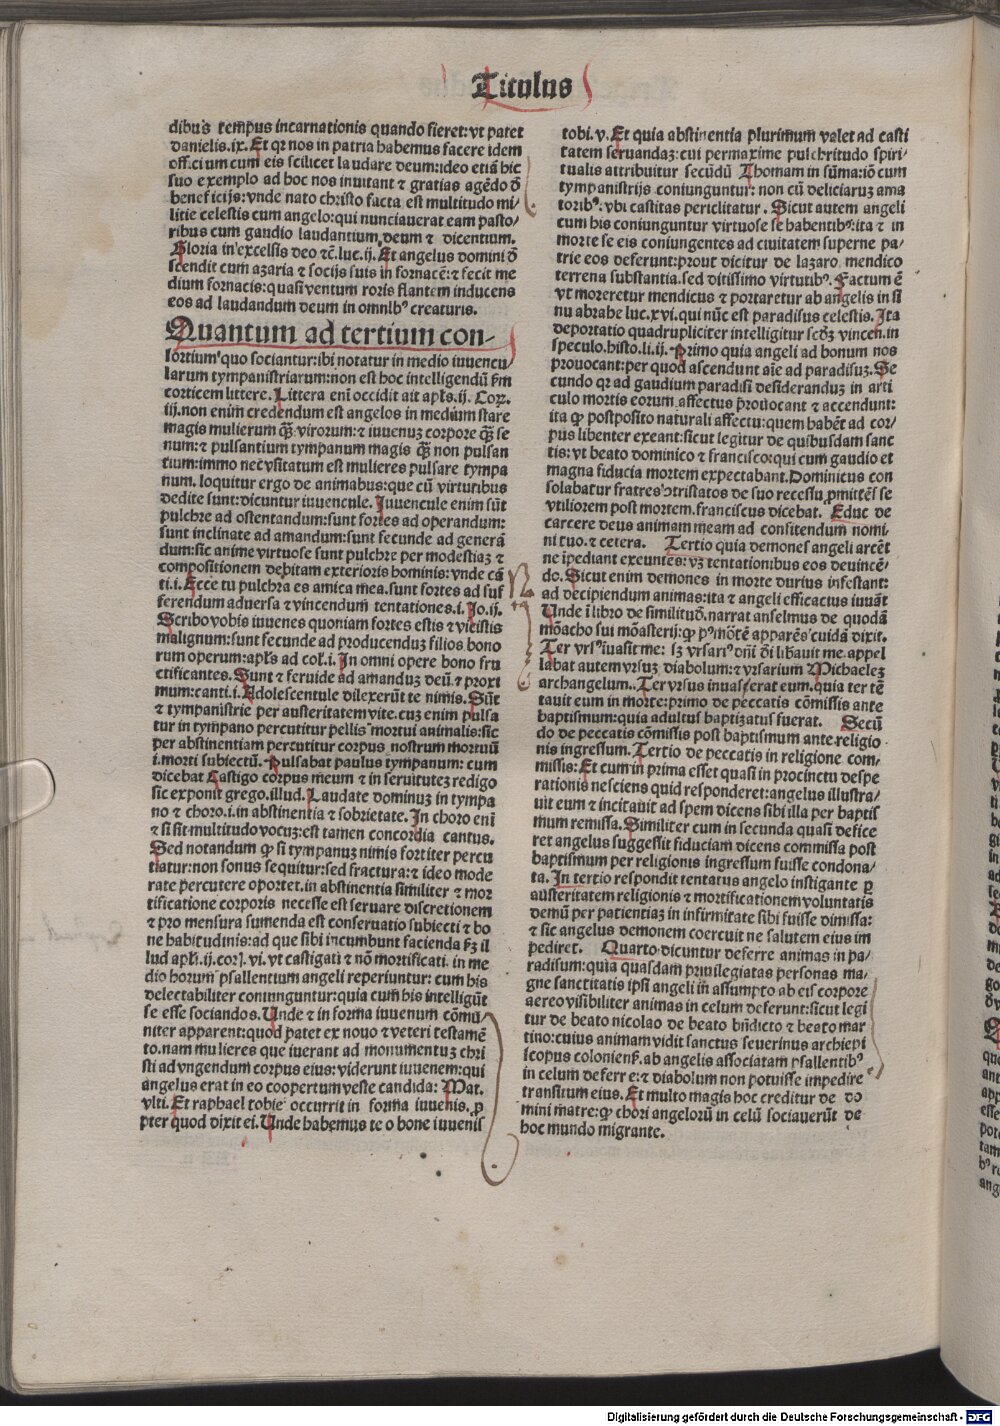 Titulus
dibus tempus incarnationis quando fieret: vt patet
danielis.ix. Et qꝛ nos in patria habemus facere idem
officium cum eis scilicet laudare deum: ideo etiā hic
suo exemplo ad hoc nos inuitant ⁊ gratias agēdo ꝺ̄
beneficijs: vnde nato christo facta est multitudo mi⸗
litie celestis cum angelo: qui nunciauerat eam pasto⸗
ribus cum gaudio laudantium deum ⁊ dicentium.
Gloria in excelsis deo ⁊c̄. luc.ij. Et angelus domini ꝺ̄
scendit cum azaria ⁊ socijs suis in fornacē: ⁊ fecit me
dium fornacis: quasi ventum roris flantem inducens
eos ad laudandum deum in omnibꝰ creaturis.
Quantum ad tertium con⸗
sortium quo sociantur: ibi notatur in medio iuuencu⸗
larum tympanistriarum: non est hoc intelligendū ẜm
corticem littere. Littera enī occidit ait apl̄s.ij. Coꝝ.
iij. non enim credendum est angelos in medium stare
magis mulierum qꝫ̄ virorum: ⁊ iuuenuꝫ corpore qꝫ̄ se
num: ⁊ pulsantium tympanum magis qꝫ̄ non pulsan
tium: immo nec vsitatum est mulieres pulsare tympa
num. loquitur ergo de animabus: que cū virtutibus
dedite sunt: dicuntur iuuencule. Iuuencule enim sūt
pulchre ad ostentandum: sunt fortes ad operandum:
sunt inclinate ad amandum: sunt fecunde ad generā
dum: sic anime virtuose sunt pulchre per modestiaꝫ ⁊
compositionem debitam exterioris hominis: vnde cā
ti.i. Ecce tu pulchra es amica mea. sunt fortes ad suf
ferendum aduersa ⁊ vincendum tentationes.i. Jo.ij.
Scribo vobis iuuenes quoniam fortes estis ⁊ vicistis
malignum: sunt fecunde ad producenduꝫ filios bono
rum operum: apl̄s ad col̄.i. In omni opere bono fru
ctificantes. Sunt ⁊ feruide ad amanduꝫ deū ⁊ proxi
mum: canti.i. Adolescentule dilexerūt te nimis. Sūt
⁊ tympanistrie per austeritatem vite. cuꝫ enim pulsa
tur in tympano percutitur pellis mortui animalis: sic
per abstinentiam percutitur corpus nostrum mortuū
i. morti subiectū. Pulsabat paulus tympanum: cum
dicebat Castigo corpus meum ⁊ in seruituteꝫ redigo
sic exponit grego. illud. Laudate dominuꝫ in tympa
no ⁊ choro.i. in abstinentia ⁊ sobrietate. In choro enī
⁊ si sit multitudo vocuꝫ: est tamen concordia cantus.
Sed notandum ꝙ si tympanuꝫ nimis fortiter percu
tiatur: non sonus sequitur: sed fractura: ⁊ ideo mode
rate percutere oportet. in abstinentia similiter ⁊ mor
tificatione corporis necesse est seruare discretionem
⁊ pro mensura sumenda est conseruatio subiecti ⁊ bo
ne habitudinis: ad que sibi incumbunt facienda ẜꝫ il
lud apl̄i.ij. coꝝ.vi. vt castigati ⁊ nō mortificati. in me
dio horum psallentium angeli reperiuntur: cum his
delectabiliter coniunguntur: quia cum his intelligūt
se esse sociandos. Unde ⁊ in forma iuuenum cōmu
niter apparent: quod patet ex nouo ⁊ veteri testamē
to. nam mulieres que iuerant ad monumentuꝫ chri
sti ad vngendum corpus eius: viderunt iuuenem: qui
angelus erat in eo coopertum veste candida: Mat.
vlti. Et raphael tobie occurrit in forma iuuenis. ꝓ
pter quod dixit ei. Unde habemus te o bone iuuenis
tobi.v. Et quia abstinentia plurimum valet ad casti
tatem seruandaꝫ: cui permaxime pulchritudo spiri⸗
tualis attribuitur secūdū Thomam in sūma: iō cum
tympanistrijs coniunguntur: non cū deliciaruꝫ ama
toribꝰ: vbi castitas periclitatur. Sicut autem angeli
cum his coniunguntur virtuose se habentibꝰ: ita ⁊ in
morte se eis coniungentes ad ciuitatem superne pa⸗
trie eos deferunt: prout dicitur de lazaro mendico
terrena substantia. sed ditissimo virtutibꝰ. Factum ē
vt moreretur mendicus ⁊ portaretur ab angelis in si
nu abrahe luc.xvi. qui nūc est paradisus celestis. Ita
deportatio quadrupliciter intelligitur scd̄ꝫ vincen. in
speculo. histo.li.ij. Primo quia angeli ad bonum nos
prouocant: per quod ascendunt aīe ad paradisuꝫ. Se
cundo qꝛ ad gaudium paradisi desideranduꝫ in arti
culo mortis eorum affectus p̄uocant ⁊ accendunt:
ita ꝙ postposito naturali affectu: quem habēt ad cor⸗
pus libenter exeant: sicut legitur de quibusdam sanc
tis: vt beato dominico ⁊ francisco: qui cum gaudio et
magna fiducia mortem expectabant. Dominicus con
solabatur fratres ꝯtristatos de suo recessu ꝓmittēs se
vtiliorem post mortem. franciscus dicebat. Educ de
carcere deus animam meam ad confitendum nomi
ni tuo. ⁊ cetera. Tertio quia demones angeli arcēt
ne īpediant exeuntes: vꝫ tentationibus eos deuincē⸗
do. Sicut enim demones in morte durius infestant:
ad decipiendum animas: ita ⁊ angeli efficacius iuuāt
Unde ī libro de similitud̄. narrat anselmus de quodā
mōacho sui mōasterij: ꝙ pꝰ mōtē apparēs cuidā dixit.
Ter vrsꝰ īuasit me: sꝫ vrsariꝰ dn̄i ōi lib̄auit me. appel
labat autem vrsuꝫ diabolum: ⁊ vrsarium Michaeleꝫ
archangelum. Ter vrsus inuaserat eum. quia ter tē
tauit eum in morte: primo de peccatis cōmissis ante
baptismum: quia adultus baptizatus fuerat. Secū
do de peccatis cōmissis post baptismum ante religio
nis ingressum. Tertio de peccatis in religione com⸗
missis: Et cum in prima esset quasi in procinctu despe
rationis nesciens quid responderet: angelus illustra⸗
uit eum ⁊ incitauit ad spem dicens sibi illa per baptis
mum remissa. Similiter cum in secunda quasi defice
ret angelus suggessit fiduciam dicens commissa post
baptismum per religionis ingressum fuisse condona⸗
ta. In tertio respondit tentatus angelo instigante ꝑ
austeritatem religionis ⁊ mortificationem voluntatis
demū per patientiaꝫ in infirmitate sibi fuisse dimissa:
⁊ sic angelus demonem coercuit ne salutem eius im
pediret. Quarto dicuntur deferre animas in pa⸗
radisum: quia quasdam priuilegiatas personas ma⸗
gne sanctitatis ipsi angeli in assumpto ab eis corpore
aereo visibiliter animas in celum deferunt: sicut legi
tur de beato nicolao de beato bn̄dicto ⁊ beato mar
tino: cuius animam vidit sanctus seuerinus archiepi
scopus colonien̄. ab angelis associatam psallentibꝰ
in celum deferre: ⁊ diabolum non potuisse impedire
transitum eius. Et multo magis hoc creditur de do
mini matre: ꝙ chori angelorū in celū sociauerūt de
hoc mundo migrante.
Digitalisierung gefördert durch die Deutsche Forschungsgemeinschaft - DFG